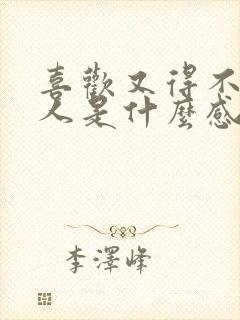 喜歡又得不
人是什麼感
李澤峰